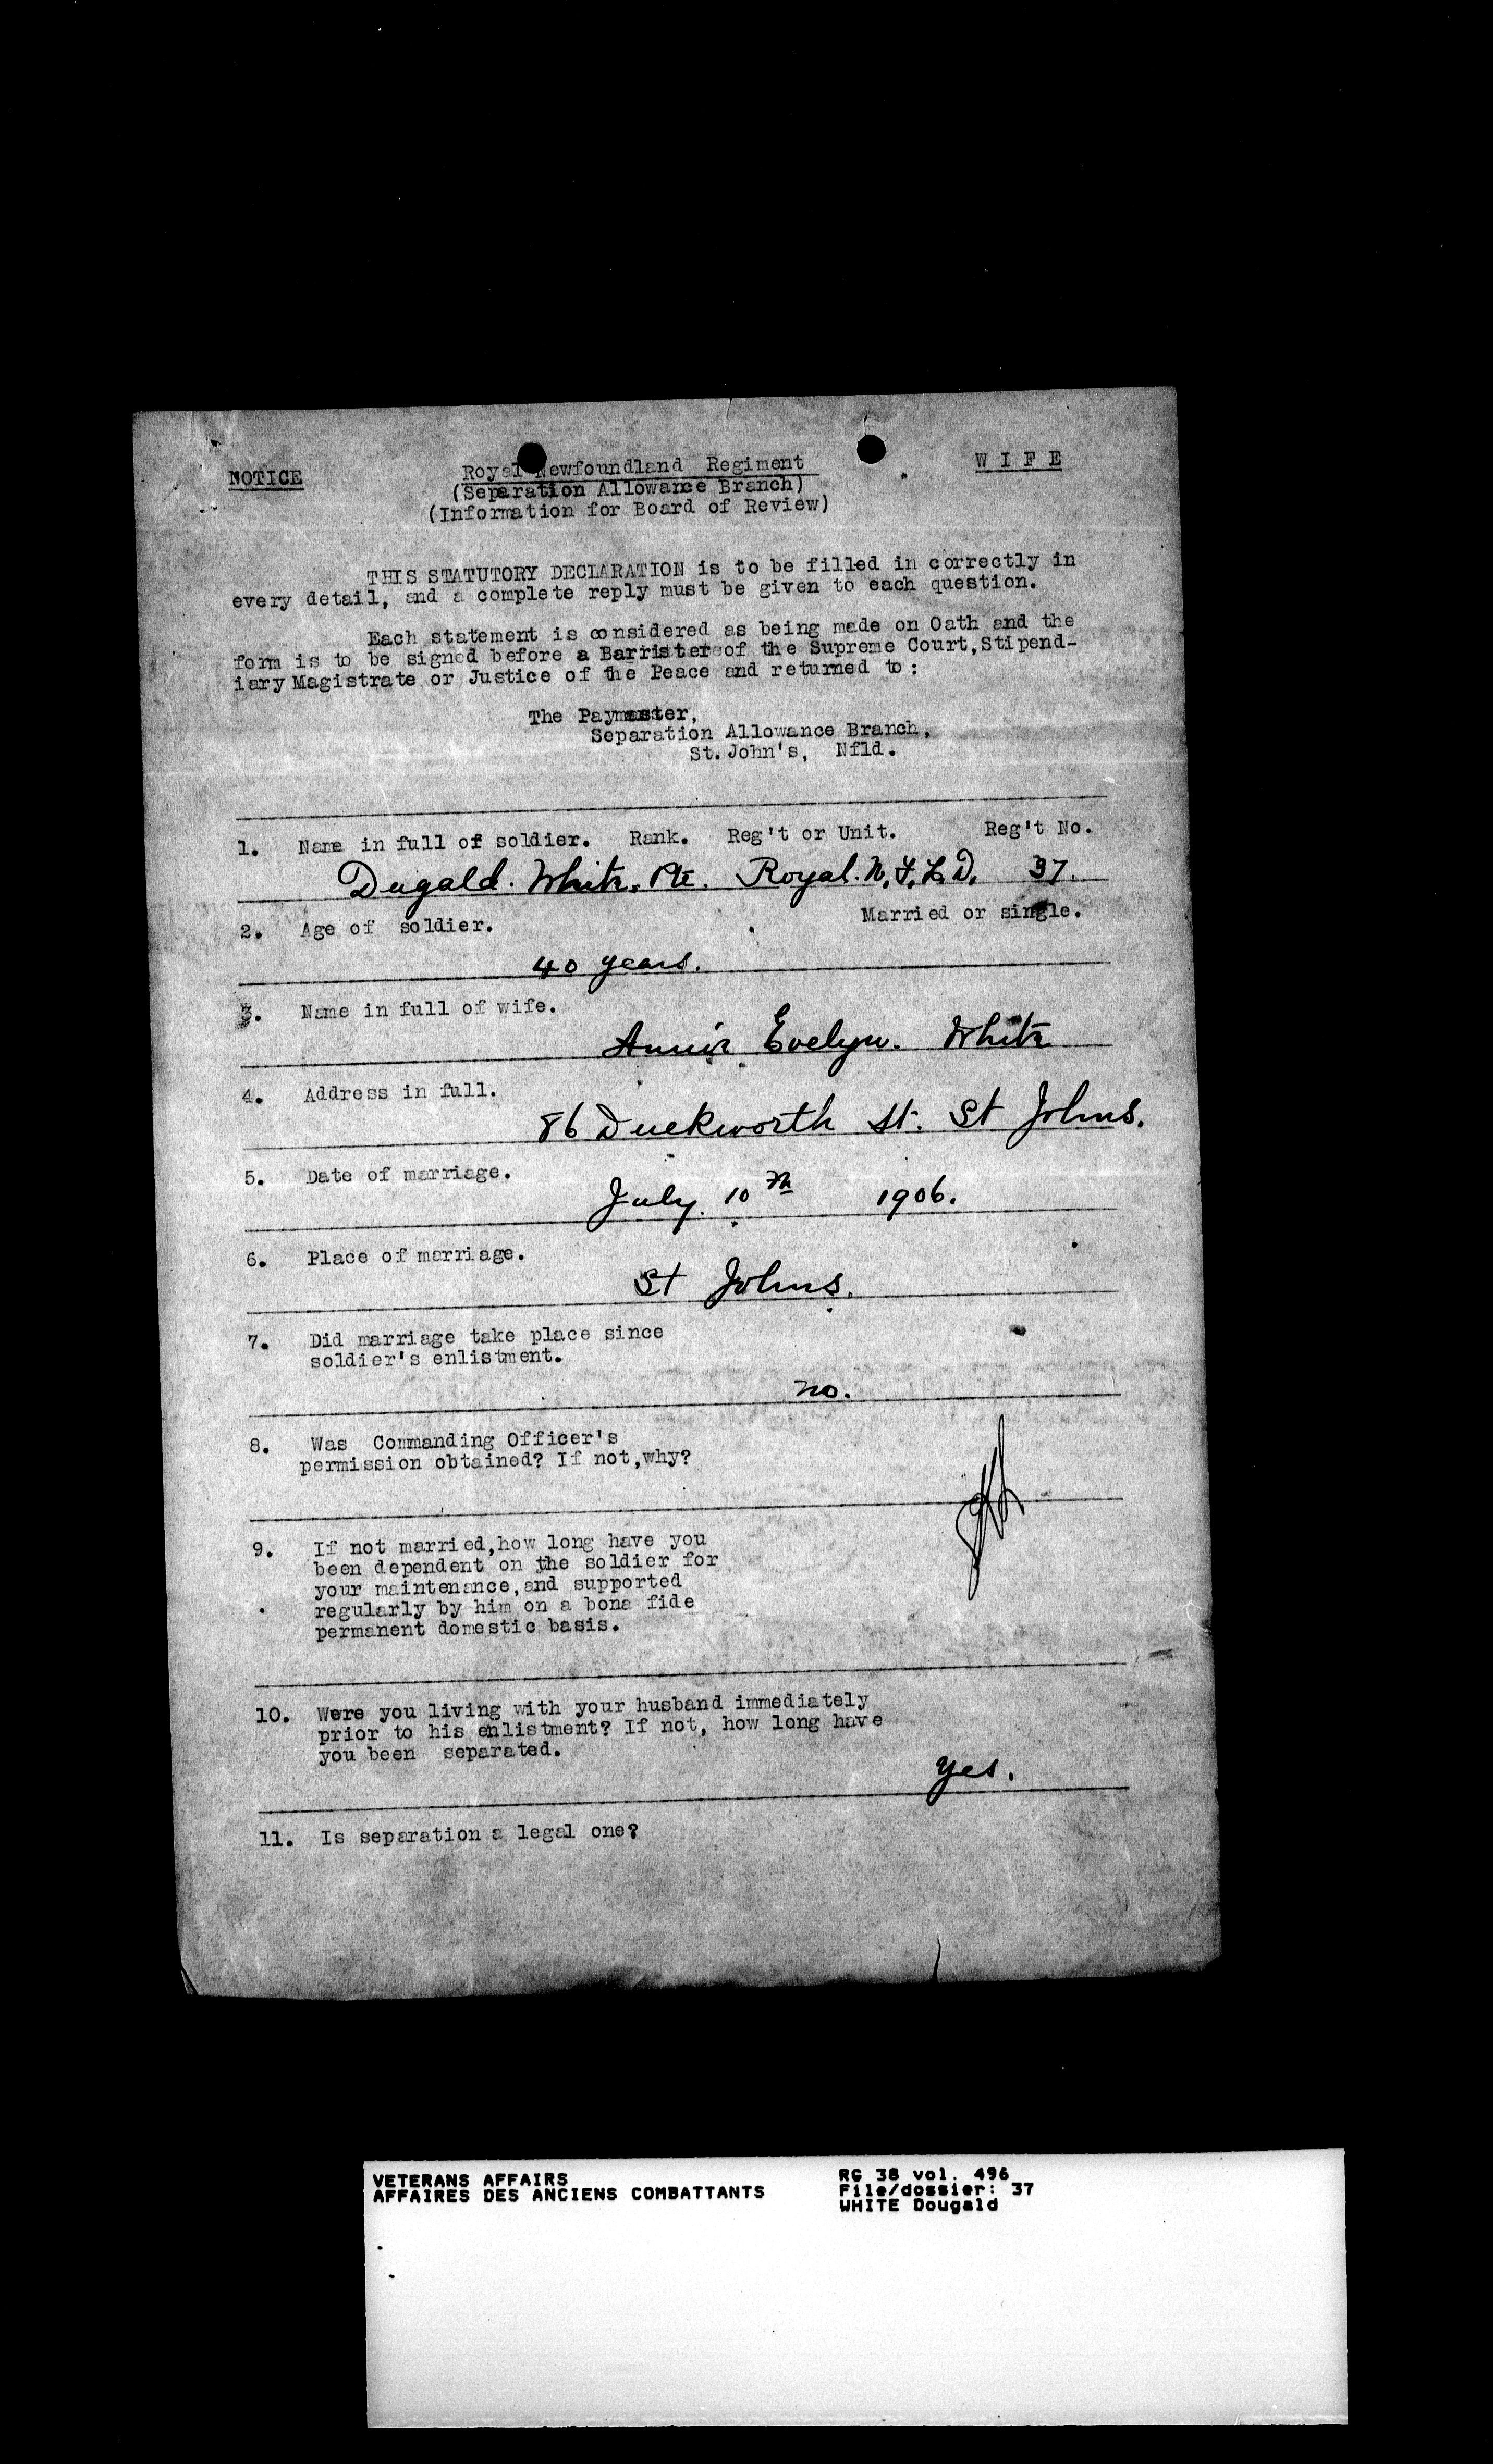 NOTICE
Royal Newfoundland Regiment
W I F E
(Separation Allowance Branch)
(Information for Board of Review)
THIS STATUTORY DECLARATION is to be filled in correctly in
every detail, and a complete reply must be given to each question.
Each statement is considered as being made on Oath and the
form is to be signed before a Barrister of the Supreme Court, Stipend-
iary Magistrate or Justice of the Peace and returned to:
The Paymaster,
Separation Allowance Branch,
St. John's, Nfld.
1. Name in full of soldier. Rank. Reg't or Unit. Reg't No.
Dugald. White. Pte. Royal. N.F.L.D. 37.
2. Age of soldier. Married or single.
40 years.
3. Name in full of wife.
Annie Evelyn. White
4. Address in full.
86 Duckworth St. St Johns.
5. Date of marriage.
July. 10th 1906.
6. Place of marriage.
St Johns.
7. Did marriage take place since
soldier's enlistment.
no.
8. Was Commanding Officer's
permission obtained? If not, why?
9. If not married, how long have you
been dependent on the soldier for
your maintenance, and supported
regularly by him on a bona fide
permanent domestic basis.
10. Were you living with your husband immediately
prior to his enlistment? If not, how long have
you been separated.
yes.
11. Is separation a legal one?
VETERANS AFFAIRS
AFFAIRES DES ANCIENS COMBATTANTS
RG 38 vol. 496
File/dossier: 37
WHITE Dougald